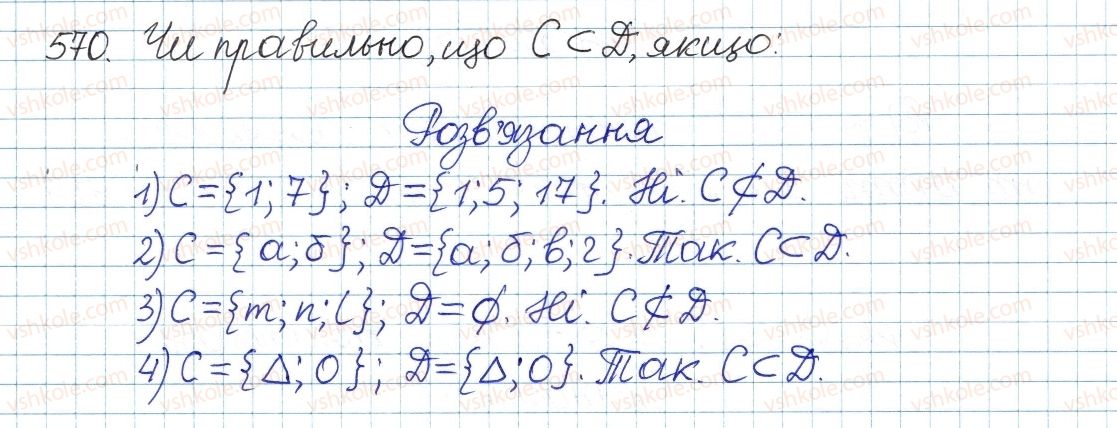 570. Чи правильно, що C ⊂ D, якщо:
Розв'язання
1) C = {1; 7}; D = {1; 5; 17}. Ні. C ⊄ D.
2) C = {а; б}; D = {а; б; в; г}. Так. C ⊂ D.
3) C = {m; n; l}; D = ∅. Ні. C ⊄ D.
4) C = {Δ; O}; D = {Δ; O}. Так. C ⊂ D.
vshkole.com